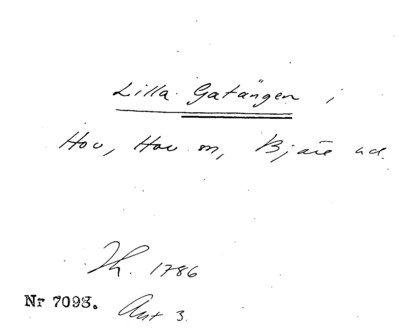 Lilla Gatängen i
Hov, Hov sn, Bjäre hd.
Th. 1786
Nr 7093. Akt 3.